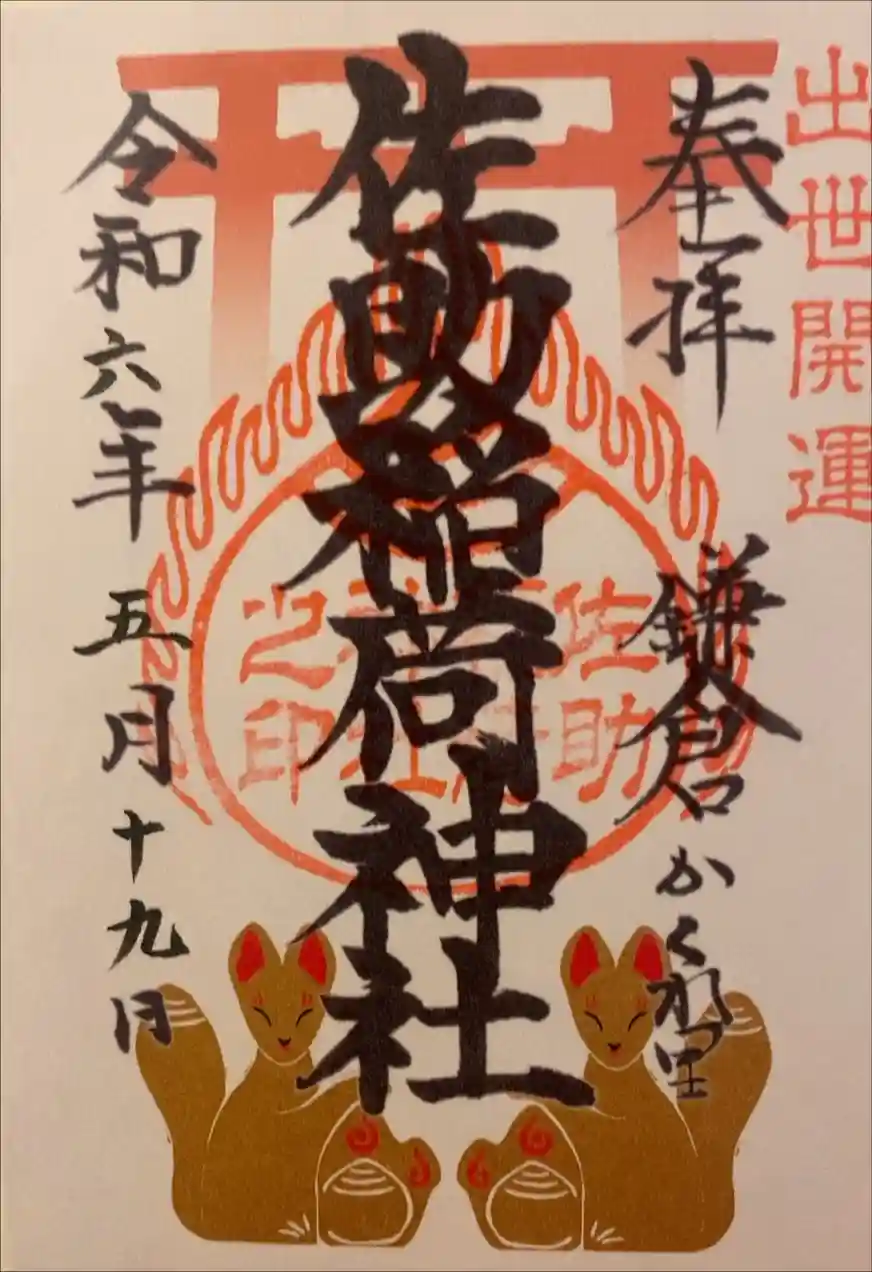 出世開運
奉拝
鎌倉かくれ里
佐助稲荷神社
佐助
之印
令和六年五月十九日